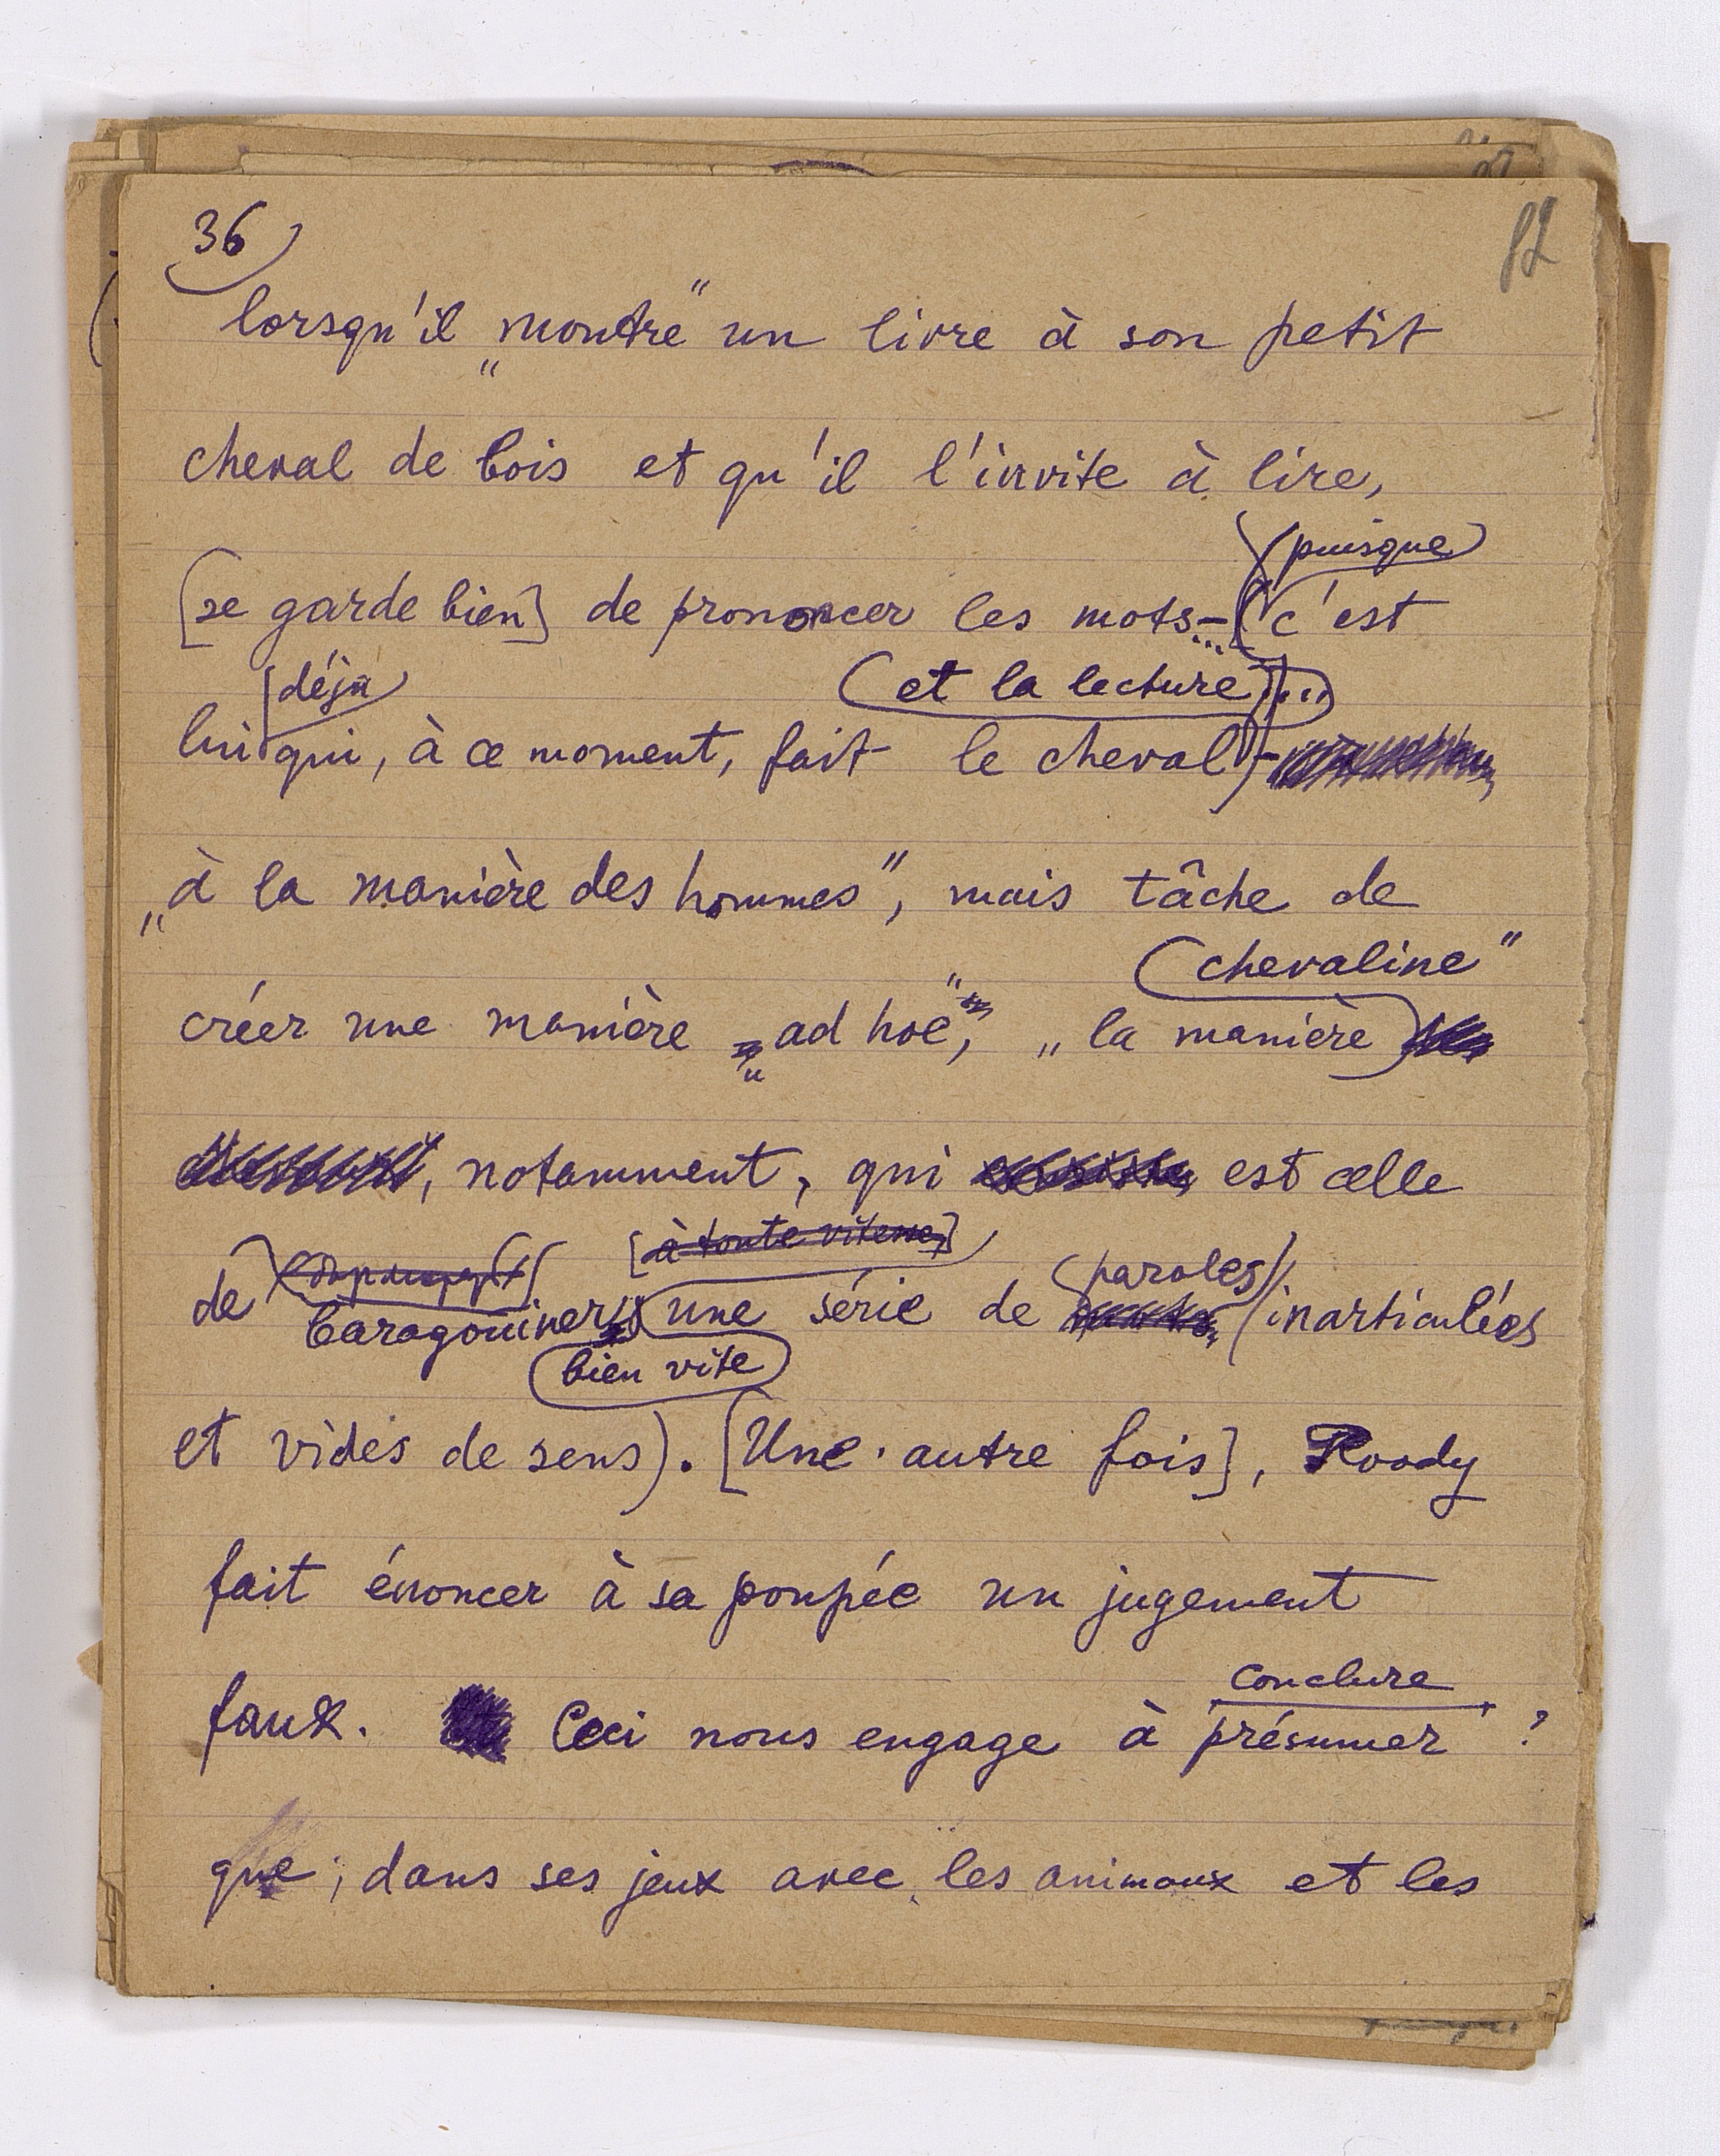 36
82
lorsqu'il „montre" un livre à son petit
cheval de bois et qu'il l'invite à lire,
(puisque)
[se garde bien] de prononcer les mots-... (c'est
[déjà) (et la lecture)...)
lui qui, à ce moment, fait le cheval)-
„à la manière des hommes", mais tâche de
(chevaline"
créer une manière „ad hoc", „la manière)
, notamment, qui est celle
[à toute vitesse]
de baragouiner une série de (paroles) (inarticulées
(bien vite)
et vides de sens). [Une autre fois], Roody
fait énoncer à sa poupée un jugement
conclure
faux. Ceci nous engage à présumer ?
que, dans ses jeux avec les animaux et les